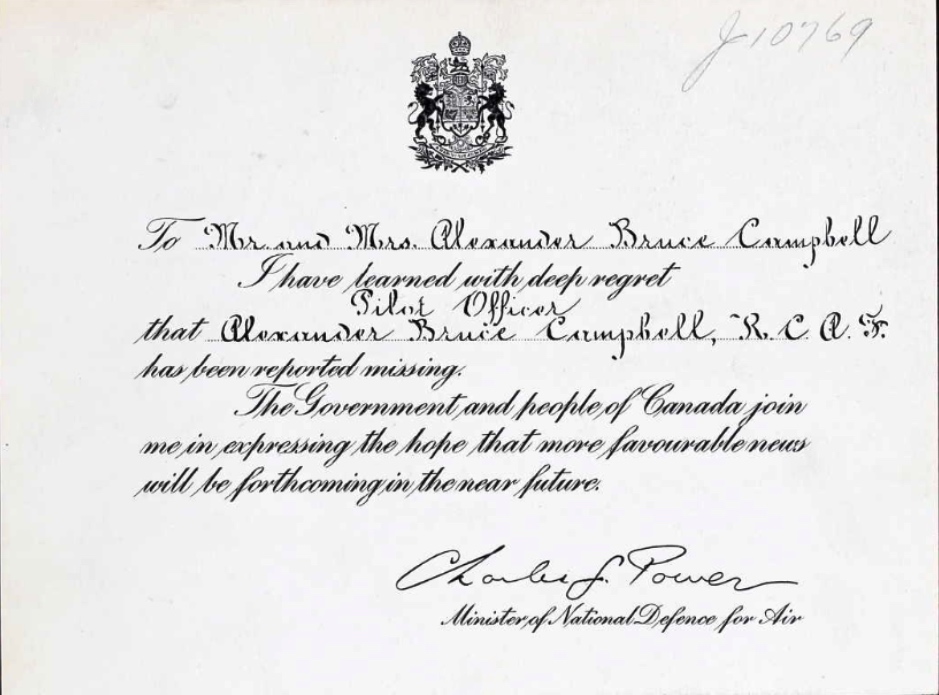 J10769
To Mr. and Mrs. Alexander Bruce Campbell
I have learned with deep regret
Pilot Officer
that Alexander Bruce Campbell, R. C. A. F.
has been reported missing.
The Government and people of Canada join
me in expressing the hope that more favourable news
will be forthcoming in the near future.
Charles G. Power
Minister of National Defence for Air